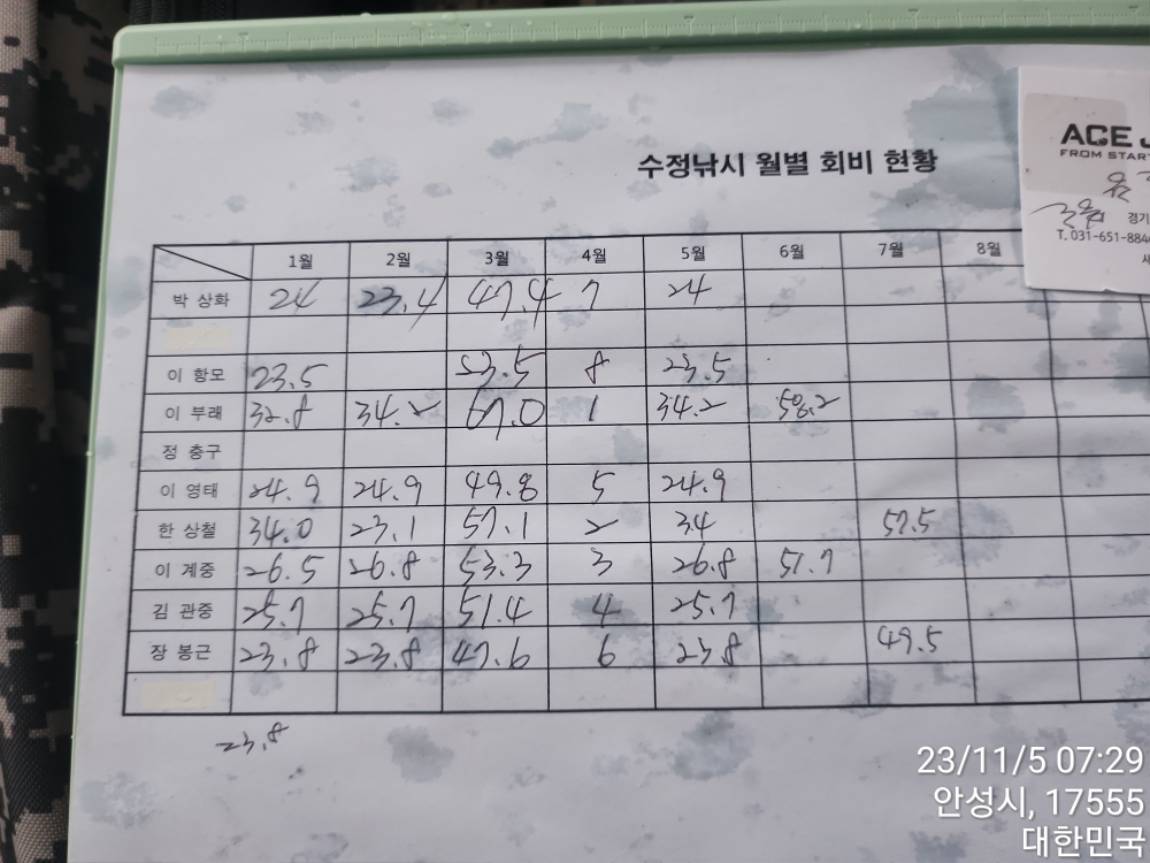 ACE
FROM START
경기
T. 031-651-884
수정낚시 월별 회비 현황
1월 2월 3월 4월 5월 6월 7월 8월
박 상화 24 23.4 47.4 7 24
이 항모 23.5 53.5 8 23.5
이 부래 32.8 34.2 67.0 1 34.2 58.2
정 충구
이 영태 24.9 24.9 49.8 5 24.9
한 상철 34.0 23.1 57.1 2 34 57.5
이 계중 26.5 26.8 53.3 3 26.8 51.7
김 관중 25.7 25.7 51.4 4 25.7
장 봉근 23.8 23.8 47.6 6 23.8 49.5
23.8
23/11/5 07:29
안성시, 17555
대한민국